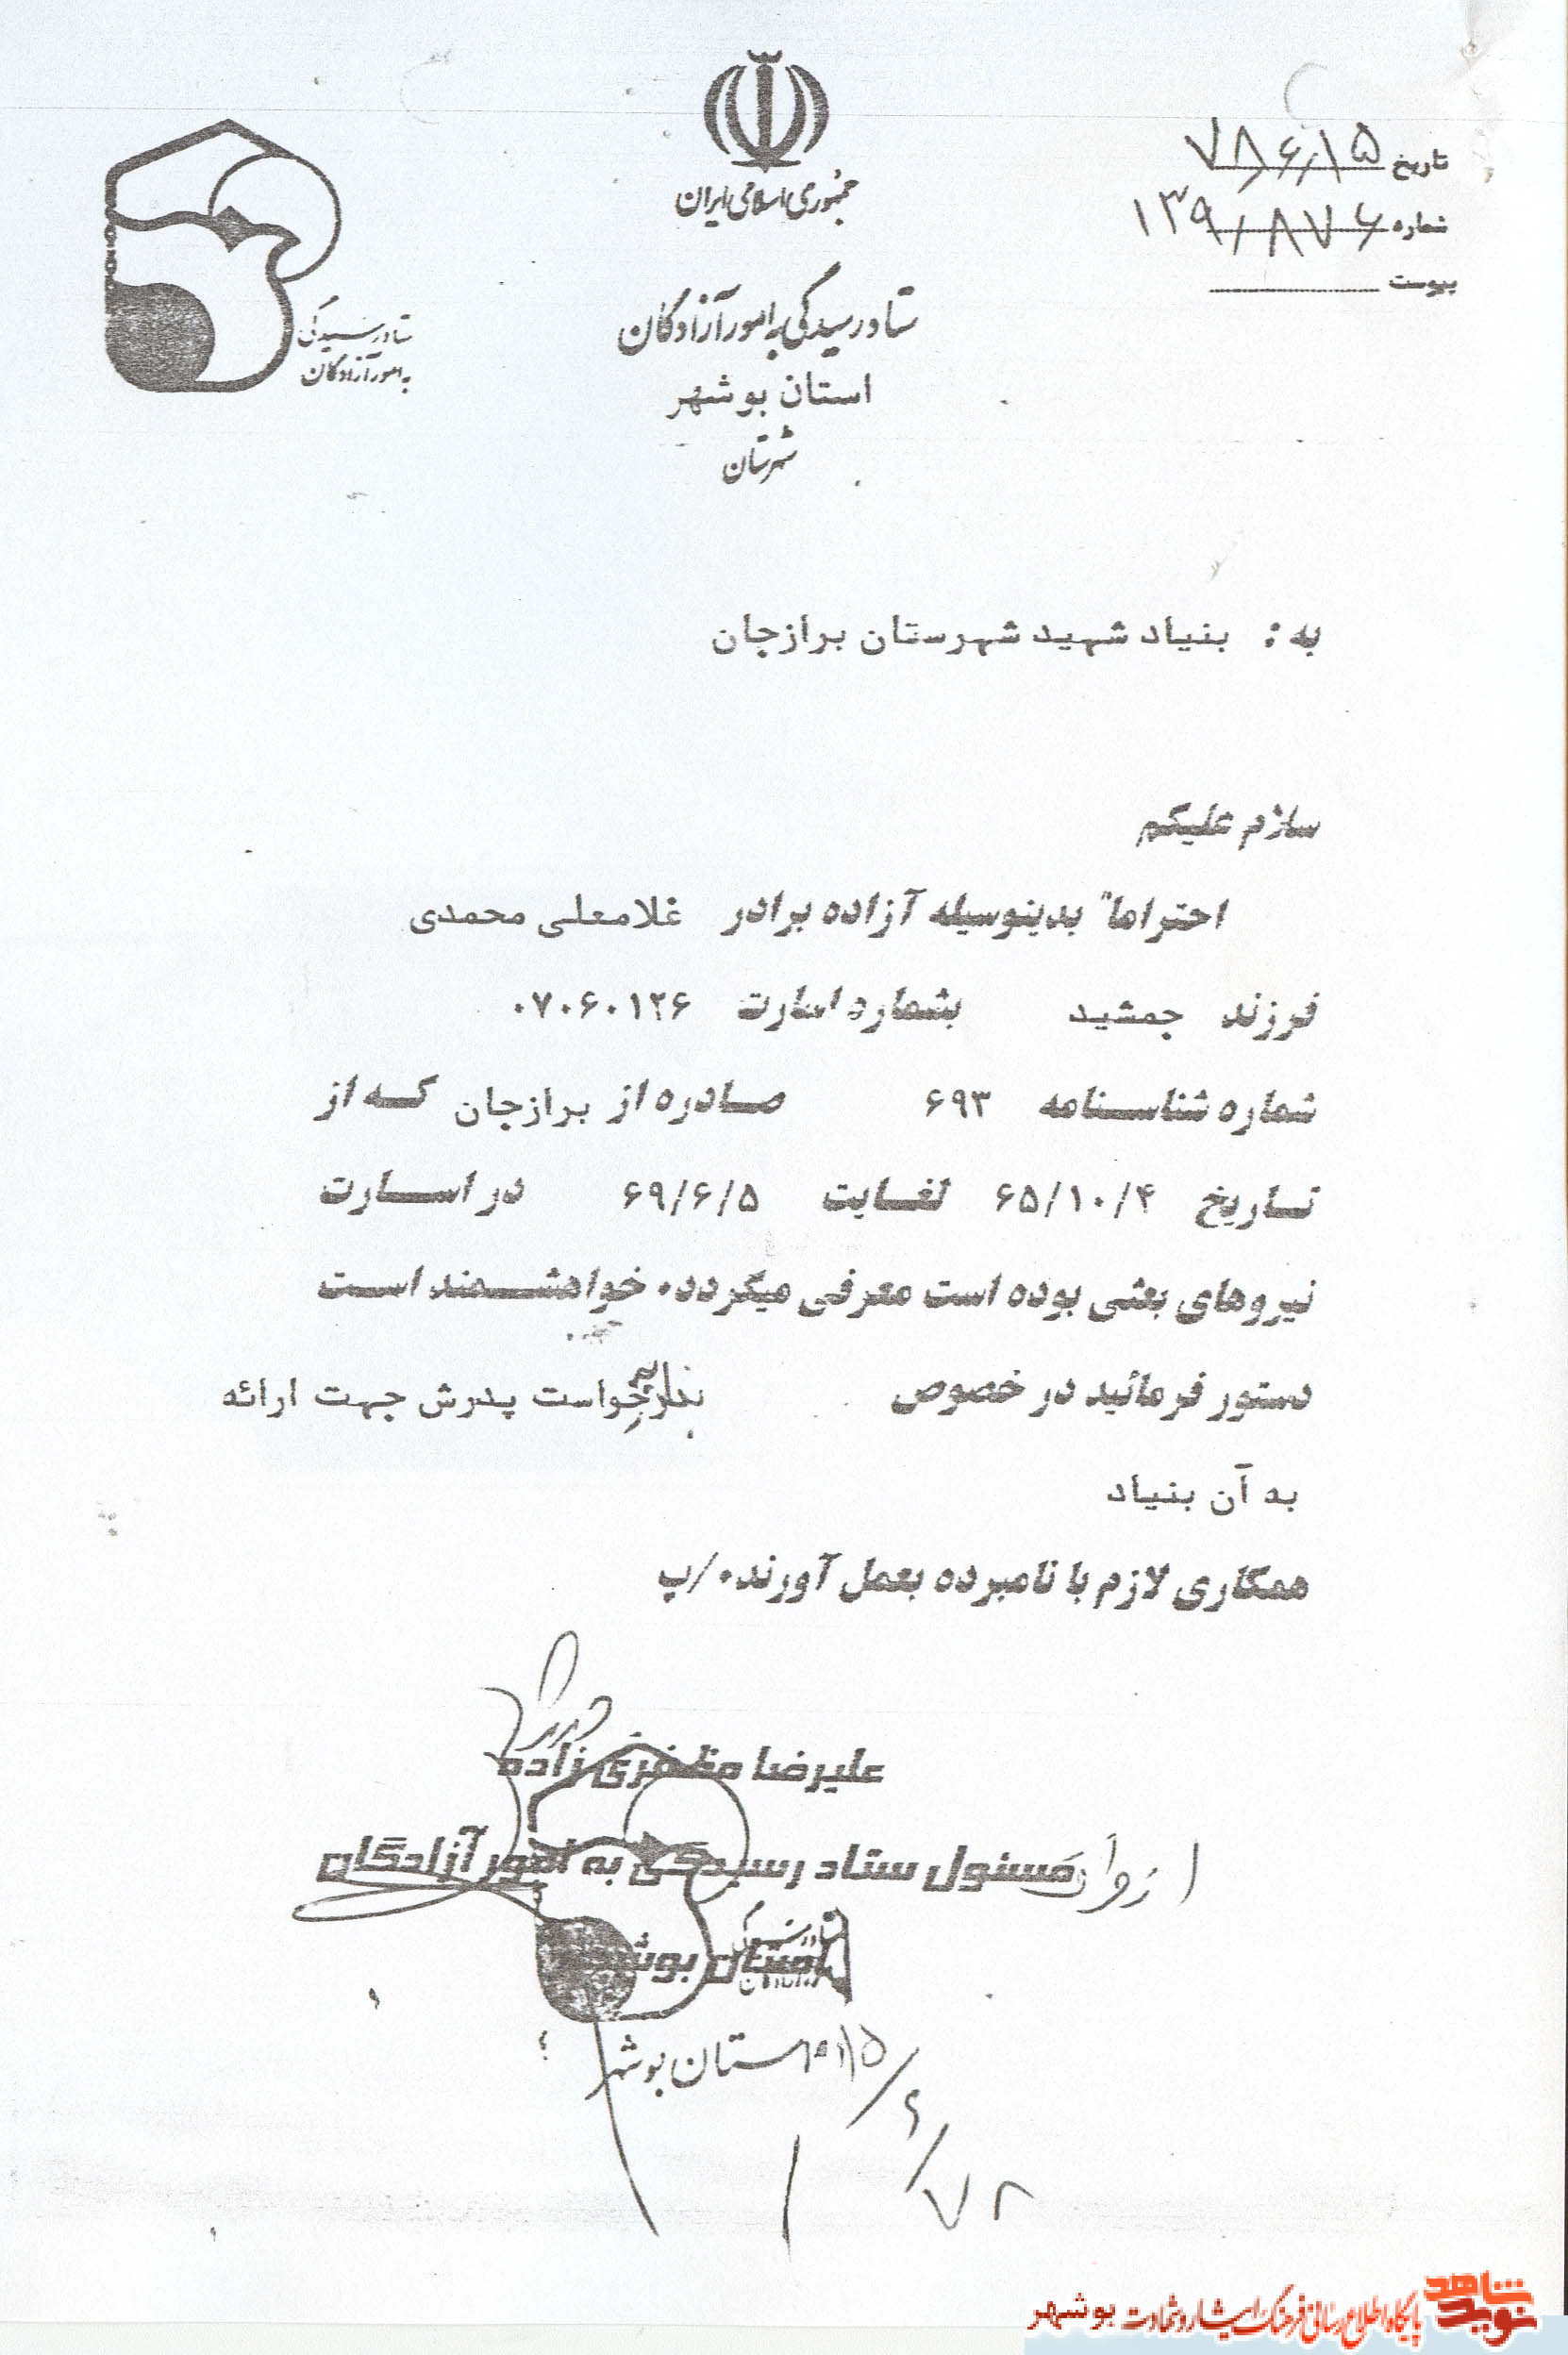 تاریخ ۷۸/۶/۱۵
شماره ۱۳۹/۸۷۶
پیوست
جمهوری اسلامی ایران
ستاد رسیدگی به امور آزادگان
استان بوشهر
شهرستان
ستاد رسیدگی
به امور آزادگان
به : بنیاد شهید شهرستان برازجان
سلام علیکم
احتراما" بدینوسیله آزاده برادر غلامعلی محمدی
فرزند جمشید بشماره اسارت ۰۷۰۶۰۱۲۶
شماره شناسنامه ۶۹۳ صادره از برازجان که از
تاریخ ۶۵/۱۰/۴ لغایت ۶۹/۶/۵ در اسارت
نیروهای بعثی بوده است معرفی میگردد۰ خواهشمند است
دستور فرمائید در خصوص پدرش جهت ارائه
به آن بنیاد
همکاری لازم با نامبرده بعمل آورند۰/پ
علیرضا مظفری زاده
مسئول ستاد رسیدگی به امور آزادگان
استان بوشهر
استان بوشهر
۷۸/۶/۱۵
نوید شاهد
پایگاه اطلاع رسانی فرهنگ ایثار و شهادت بوشهر